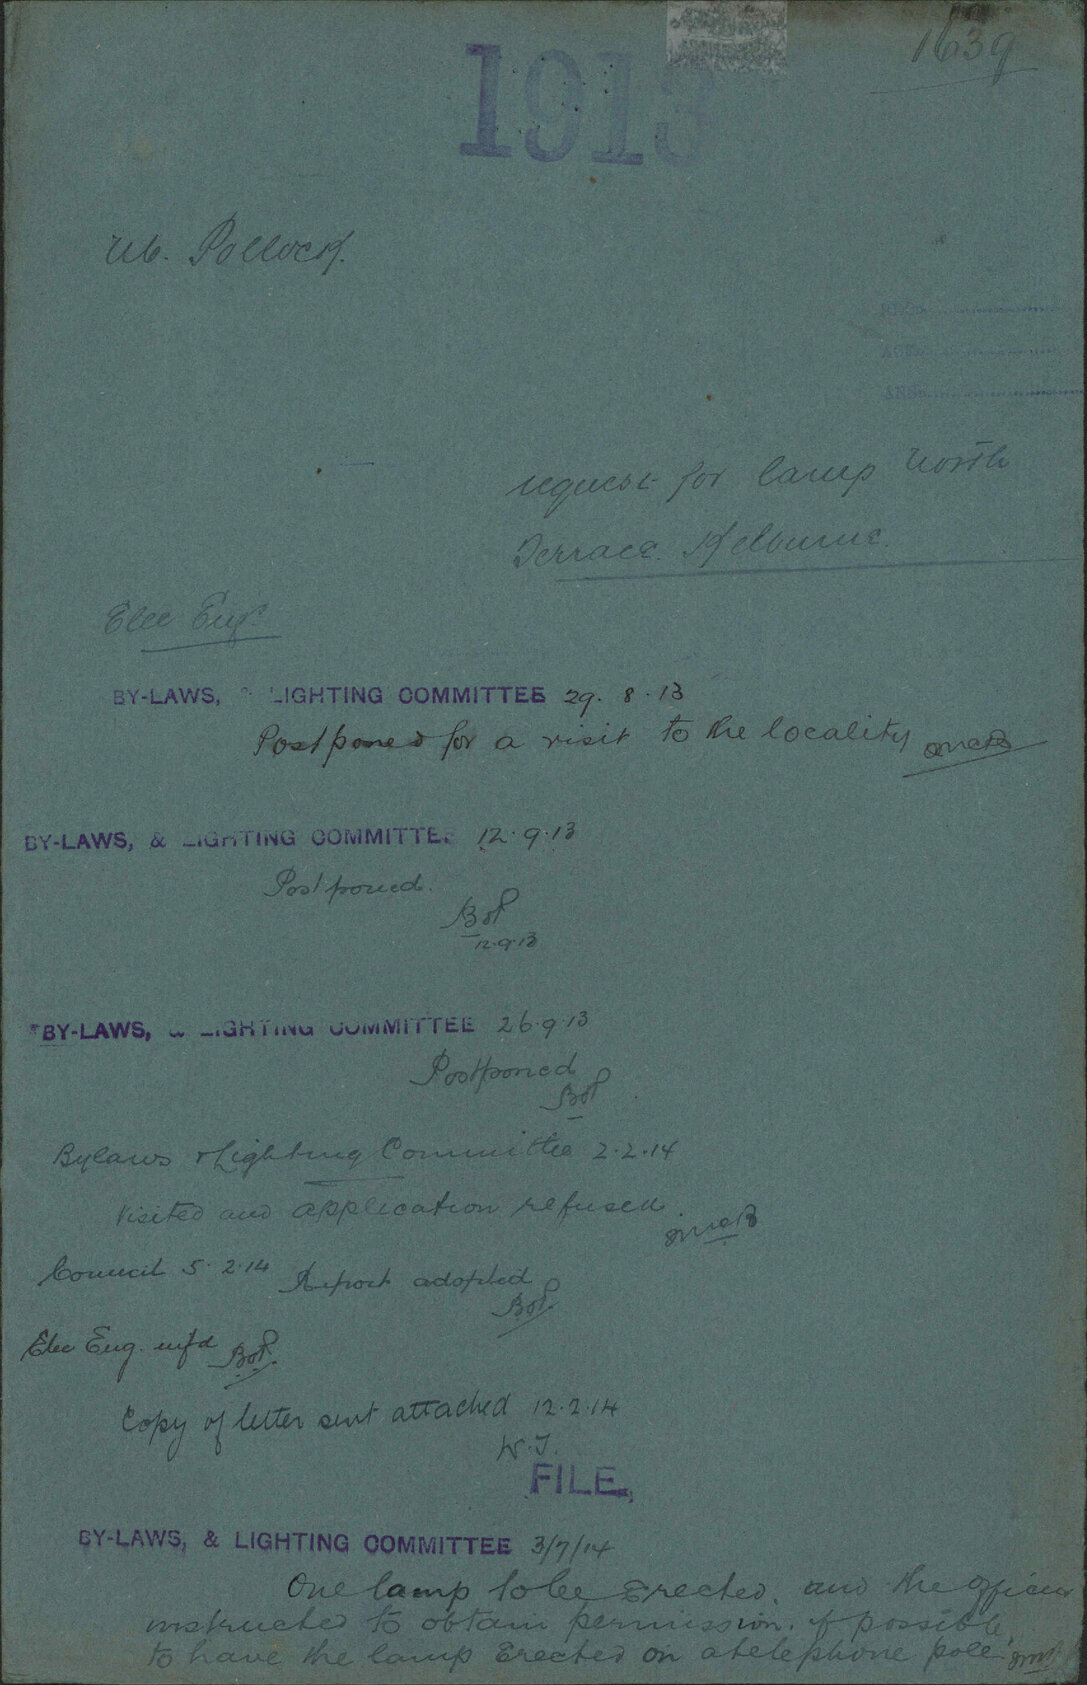 1639
1913
Pollock.
request for lamp North
Terrace. Kelburne.
Elec Engr.
BY-LAWS, & LIGHTING COMMITTEE 29. 8. 13
Postponed for a visit to the locality
BY-LAWS, & LIGHTING COMMITTEE 12.9.13
Postponed.
12.9.13
BY-LAWS, & LIGHTING COMMITTEE 26.9.13
Postponed
Bylaws & Lighting Committee 2.2.14
Visited and application refused.
Council 5.2.14 Report adopted
Elec Eng. infd
Copy of letter sent attached 12.2.14
W.J.
FILE.
BY-LAWS, & LIGHTING COMMITTEE 3/7/14
One lamp to be Erected. and the officer
instructed to obtain permission. if possible,
to have the lamp Erected on a telephone pole.